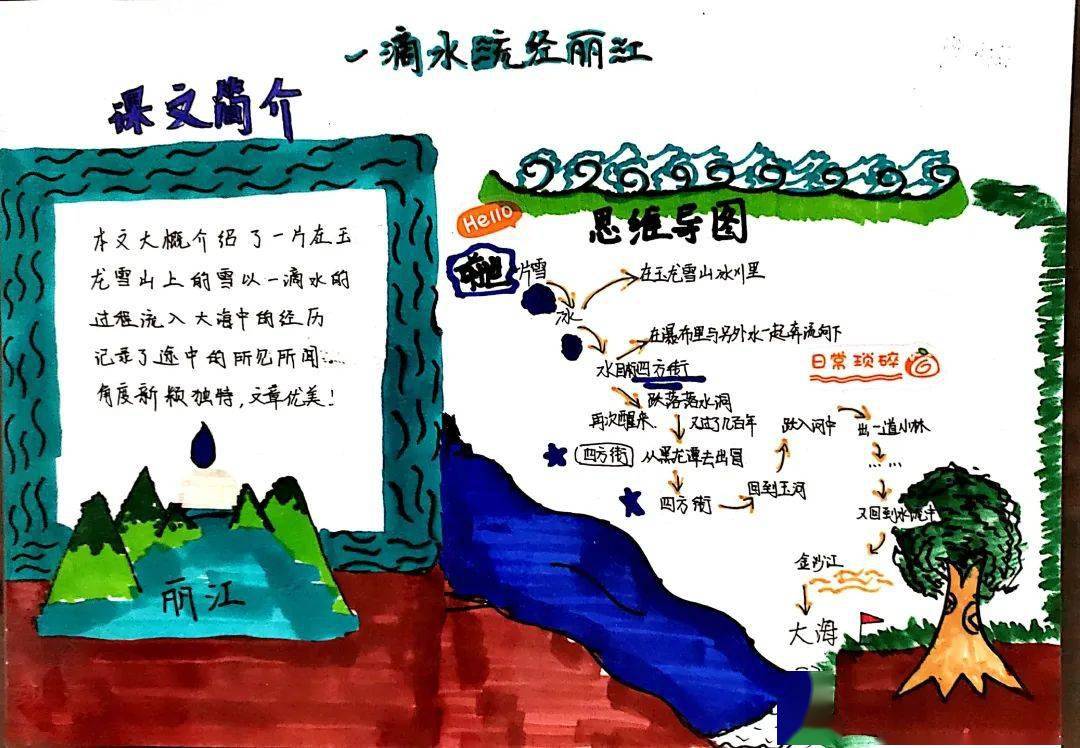 一滴水流经丽江
课文简介
本文大概介绍了一片在玉
龙雪山上的雪以一滴水的
过程流入大海中的经历
记录了途中的所见所闻……
角度新颖独特，文章优美！
丽江
Hello
思维导图
片雪
在玉龙雪山冰川里
冰
在瀑布里与另外水一起奔流向下
水 四方街
日常琐碎
跌落落水洞
再次醒来
又过了几百年
跃入河中
出一道小林
四方街
从黑龙潭去出冒
……
四方街
回到玉河
又回到水流中
金沙江
大海